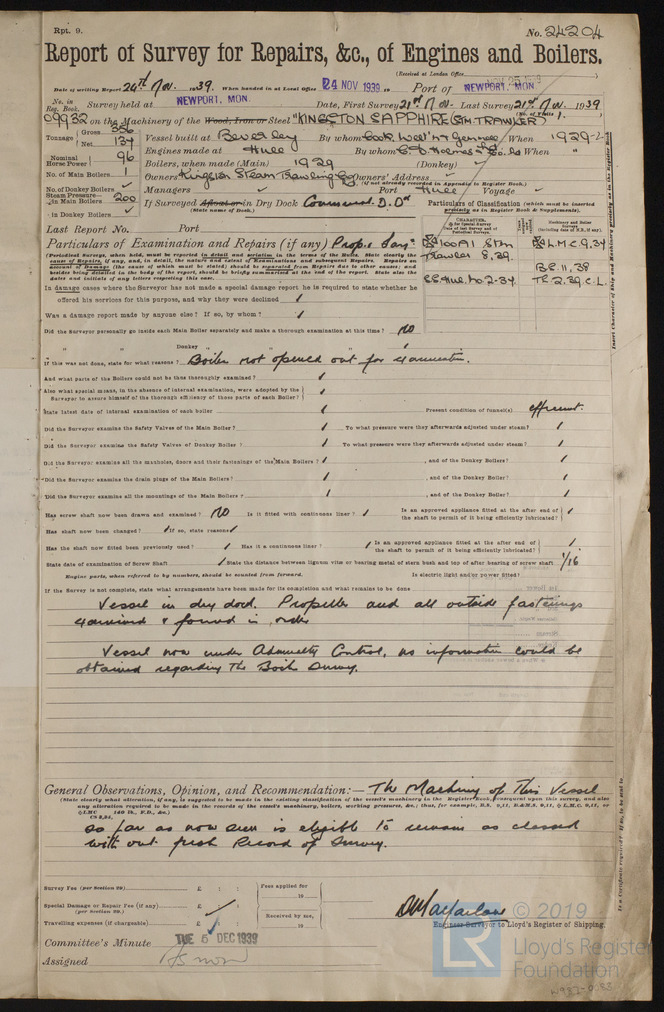 Rpt. 9.
No. 24204
Report of Survey for Repairs, &c., of Engines and Boilers.
(Received at London Office
Date of writing Report 24th Nov. 1939. When handed in at Local Office 24 NOV 1939 19 Port of NEWPORT, MON.
No. in Reg. Book. Survey held at NEWPORT, MON. Date, First Survey 21st Nov. Last Survey 21st Nov. 1939
(No. of Visits 1.)
09932 on the Machinery of the Wood, Iron or Steel "KINGSTON SAPPHIRE (SM. TRAWLER)
Tonnage Gross 356
Net 134
Vessel built at Beverley By whom Cook, Well'n & Gemmell When 1929-2
Nominal Horse Power 96
Engines made at Hull By whom C. D. Holmes & Co. Ld When
No. of Main Boilers 1
Boilers, when made (Main) 1929 (Donkey)
No. of Donkey Boilers
Owners Kingston Steam Trawling Co Owners' Address
(if not already recorded in Appendix to Register Book.)
Steam Pressure in Main Boilers 200
Managers Port Hull Voyage
in Donkey Boilers
If Surveyed Afloat or in Dry Dock Commercial D. Dk
(State name of Dock.)
Particulars of Classification (which must be inserted precisely as in Register Book & Supplements).
Last Report No. Port
CHARACTER.
Machinery and Boiler Surveys
Particulars of Examination and Repairs (if any) Prop. & Fasngs.
100A1 Stm Trawler 8,39.
L.M.C. 9,34
B.S. 11,38
SS. Hul. No. 2-34.
TS. 2,39. C.L.
(Periodical Surveys, when held, must be reported in detail and seriatim in the terms of the Rules. State clearly the cause of Repairs, if any, and, in detail, the nature and extent of Examinations and subsequent Repairs. Repairs on account of Damage (the cause of which must be stated) should be separated from Repairs due to other causes; and besides being detailed in the body of the report, should be briefly summarised at the end of the report. State also the dates and initials of any letters respecting this case.
In damage cases where the Surveyor has not made a special damage report he is required to state whether he
offered his services for this purpose, and why they were declined
Was a damage report made by anyone else? If so, by whom?
Did the Surveyor personally go inside each Main Boiler separately and make a thorough examination at this time? no
" " Donkey " " "
If this was not done, state for what reasons? Boiler not opened out for examination.
And what parts of the Boilers could not be thus thoroughly examined?
Also what special means, in the absence of internal examination, were adopted by the Surveyor to assure himself of the thorough efficiency of those parts of each Boiler?
State latest date of internal examination of each boiler Present condition of funnel(s) efficient.
Did the Surveyor examine the Safety Valves of the Main Boiler? To what pressure were they afterwards adjusted under steam?
Did the Surveyor examine the Safety Valves of Donkey Boiler? To what pressure were they afterwards adjusted under steam?
Did the Surveyor examine all the manholes, doors and their fastenings of the Main Boilers? , and of the Donkey Boilers?
Did the Surveyor examine the drain plugs of the Main Boilers? , and of the Donkey Boiler?
Did the Surveyor examine all the mountings of the Main Boilers? , and of the Donkey Boiler?
Has screw shaft now been drawn and examined? NO Is it fitted with continuous liner? Is an approved appliance fitted at the after end of the shaft to permit of it being efficiently lubricated?
Has shaft now been changed? If so, state reasons
Has the shaft now fitted been previously used? Has it a continuous liner? Is an approved appliance fitted at the after end of the shaft to permit of it being efficiently lubricated?
State date of examination of Screw Shaft State the distance between lignum vitæ or bearing metal of stern bush and top of after bearing of screw shaft 1/16
Engine parts, when referred to by numbers, should be counted from forward. Is electric light and/or power fitted?
If the Survey is not complete, state what arrangements have been made for its completion and what remains to be done
Vessel in dry dock. Propeller and all outside fastenings
examined & found in order
Vessel now under Admiralty Control, no information could be
obtained regarding the Boiler Survey.
General Observations, Opinion, and Recommendation:— The Machinery of this Vessel
(State clearly what alteration, if any, is suggested to be made in the existing classification of the vessel's machinery in the Register Book, consequent upon this survey, and also any alteration required to be made in the records of the vessel's machinery, boilers, working pressures, &c.; thus, for example, B.S. 9,11, B.&M.S. 9,11, LMC 9,11, or LMC 140 lb., F.D., &c.)
CS 3,34,
so far as now seen is eligible to remain as classed
with out fresh Record of Survey.
Survey Fee (per Section 29) £ : :
Fees applied for 19
Special Damage or Repair Fee (if any) £ : :
(per Section 29.)
Received by me, 19
Travelling expenses (if chargeable) £ : :
D. Macfarlane
Engineer Surveyor to Lloyd's Register of Shipping.
Committee's Minute TUE 5 DEC 1939
Assigned As now
Insert Character of Ship and Machinery precisely as in the Register Book
© 2019
Lloyd's Register
Foundation
W982-0083